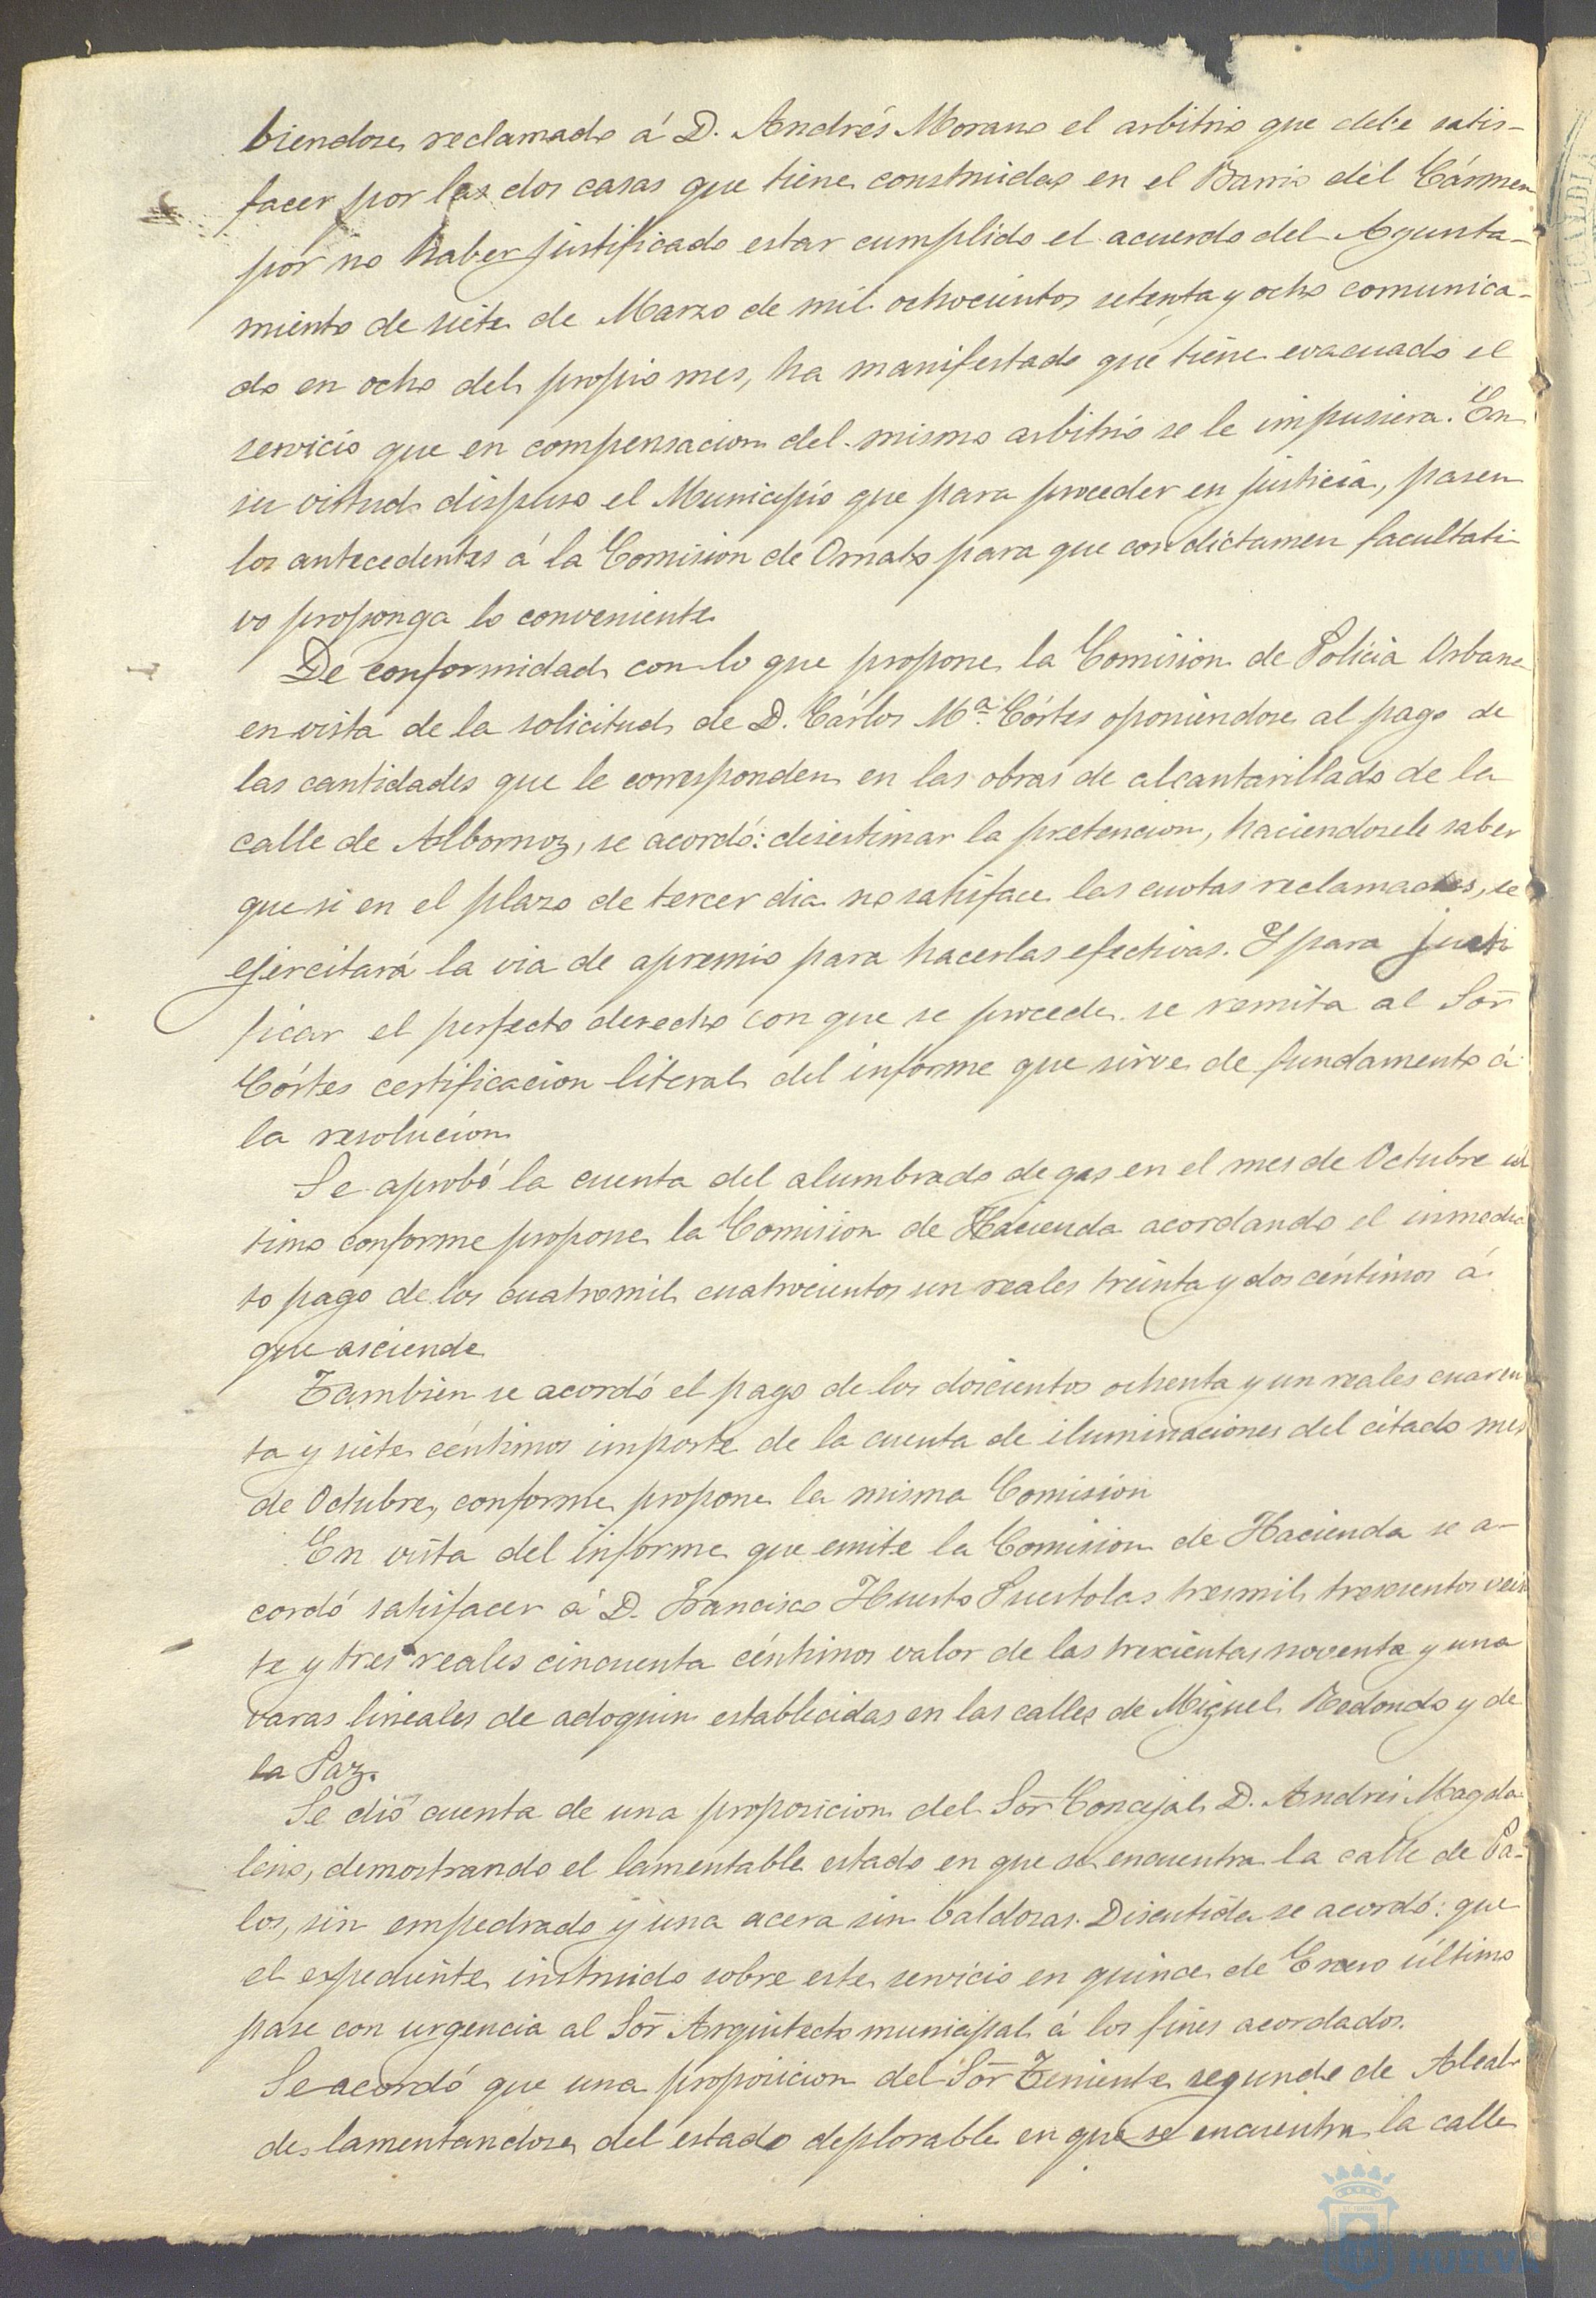 biendose reclamado á D. Andrés Morano el arbitrio que debe satis-
facer por las dos casas que tiene construidas en el Barrio del Cármen
por no haber justificado estar cumplido el acuerdo del Ayunta-
miento de siete de Marzo de mil ochocientos setenta y ocho comunica-
do en ocho del propio mes, ha manifestado que tiene evacuado el
servicio que en compensacion del mismo arbitrio se le impusiera. En
su virtud dispuso el Municipio que para proceder en justicia, pasen
los antecedentes á la Comision de Ornato para que con dictamen facultati-
vo proponga lo conveniente
De conformidad con lo que propone la Comision de Policia Urbana
en vista de la solicitud de D. Cárlos Mª Córtes oponiendose al pago de
las cantidades que le corresponden en las obras de alcantarillado de la
calle de Albornoz, se acordó: desestimar la pretencion, haciendosele saber
que si en el plazo de tercer dia no satisface las cuotas reclamadas, se
ejercitará la via de apremio para hacerlas efectivas. Y para justi
ficar el perfecto derecho con que se procede se remita al Sor̄
Córtes certificacion literal del informe que sirve de fundamento á
la resolucion
Se aprobó la cuenta del alumbrado de gas en el mes de Octubre úl
timo conforme propone la Comision de Hacienda acordando el inmedia
to pago de los cuatromil cuatrocientos un reales treinta y dos céntimos á
que asciende
Tambien se acordó el pago de los doscientos ochenta y un reales cuaren
ta y siete céntimos importe de la cuenta de iluminaciones del citado mes
de Octubre, conforme propone la misma Comision
En vista del informe que emite la Comision de Hacienda se a-
cordó satisfacer á D. Francisco Huerto Puertolas tresmil trescientos vein
te y tres reales cincuenta céntimos valor de las trescientas noventa y una
varas lineales de adoquin establecidas en las calles de Miguel Redondo y de
la Paz.
Se dió cuenta de una proposicion del Sor̄ Concejal D. Andrés Magda
leno, demostrando el lamentable estado en que se encuentra la calle de Pa-
los, sin empedrado y una acera sin baldosas. Discutida se acordó: que
el expediente instruido sobre este servicio en quince de Enero último
pase con urgencia al Sor̄ Arquitecto municipal á los fines acordados.
Se acordó que una proposicion del Sor̄ Teniente segundo de Alcal-
de lamentandose del estado deplorable en que se encuentra la calle
HUELVA